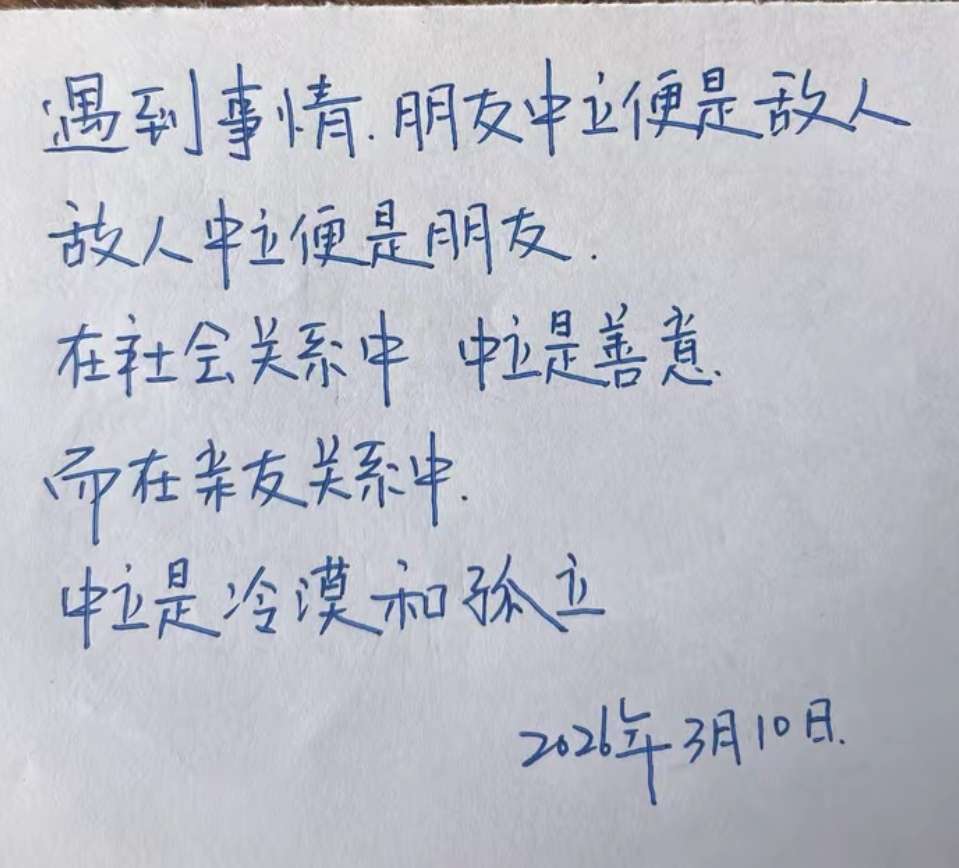 遇到事情.朋友中立便是敌人
敌人中立便是朋友.
在社会关系中 中立是善意.
而在亲友关系中.
中立是冷漠和孤立
2026年3月10日.